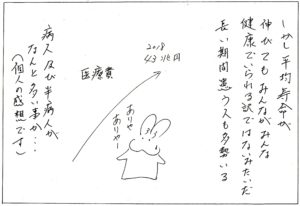 しかし平均寿命が
伸びてもみんながみんな
健康でいられる訳ではないみたいだ
長い期間患う人も多勢いる
2018
43兆円
医療費
ありゃ
ありゃー
病人及び半病人が
なんと多い事か…
(個人の感想です)